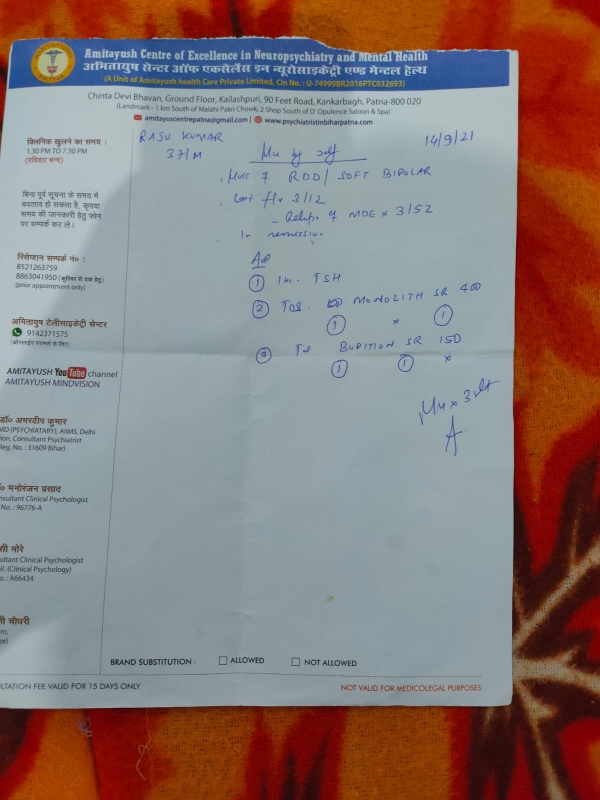 Amitayush Centre of Excellence in Neuropsychiatry and Mental Health
अमितायुष सेन्टर ऑफ एकसेलेंस इन न्यूरोसाइकेट्री एण्ड मेन्टल हेल्थ
(A Unit of Amitayush health Care Private Limited, Cin No. : U-74999BR2016PTC032693)
Chinta Devi Bhavan, Ground Floor, Kailashpuri, 90 Feet Road, Kankarbagh, Patna-800 020
(Landmark - 1 km South of Malahi Pakri Chowk, 2 Shop South of D' Opulence Saloon & Spa)
amitayuscentrepatna@gmail.com | www.psychiatristinbiharpatna.com
क्लिनिक खुलने का समय :
1.30 PM TO 7.30 PM
(रविवार बन्द)
RAJU KUMAR
37/M
14/9/21
by self
RDD/ SOFT BIPOLAR
3/12
- Relapse of MDE x 3/52
In remission
बिना पूर्व सूचना के समय में
बदलाव हो सकता है, कृपया
समय की जानकारी हेतु फोन
पर सम्पर्क कर लें।
रिसेप्शन सम्पर्क नं० :
8521263759
8863041950
(prior appointment only)
Adv
1 TSH
2 MONOLITH SR 400
1 x 1
3 BUPITION SR 150
1 1 x
x 3
अमितायुष टेलीसाइकेट्री सेन्टर
9142371575
AMITAYUSH YouTube channel
AMITAYUSH MINDVISION
डॉ० अमरदीप कुमार
MD (PSYCHIATARY), AIIMS, Delhi
Hon. Consultant Psychiatrist
Reg, No. : 31609 Bihar)
मनोरंजन प्रसाद
nsultant Clinical Psychologist
No. : 96776-A
सी मोरे
ultant Clinical Psychologist
il. (Clinical Psychology)
o. : A66434
चौधरी
BRAND SUBSTITUTION : ALLOWED NOT ALLOWED
LTATION FEE VALID FOR 15 DAYS ONLY
NOT VALID FOR MEDICOLEGAL PURPOSES